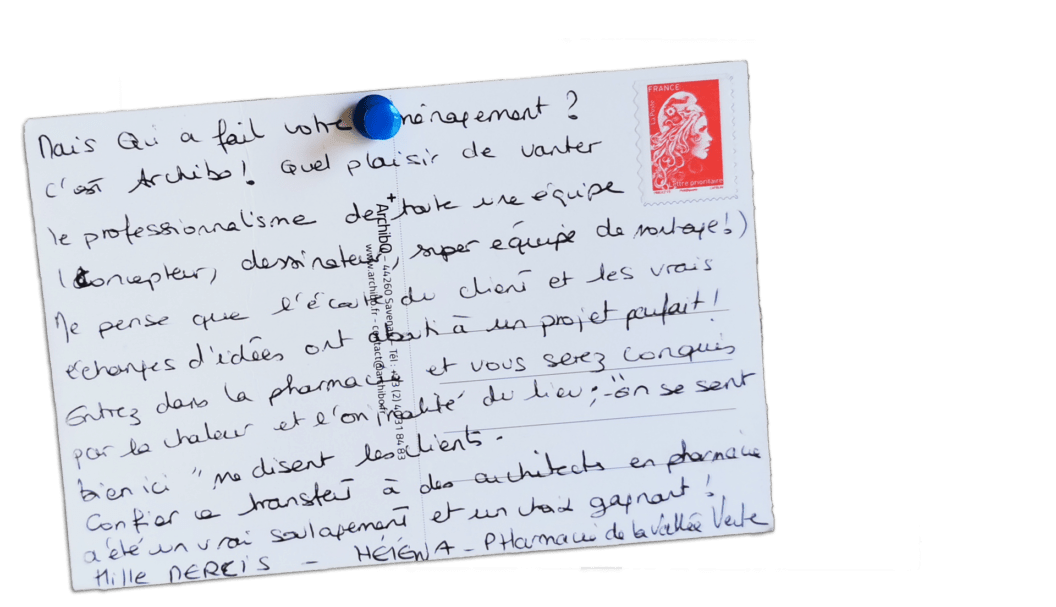 Mais Qui a fait votre ménagement ?
c'est Archibo! Quel plaisir de vanter
le professionnalisme de toute une équipe
(concepteur, dessinateur, super équipe de montage!)
Je pense que l'écoute du client et les vrais
échanges d'idées ont abouti à un projet parfait!
Entrez dans la pharmacie et vous serez conquis
par la chaleur et l'originalité du lieu; "on se sent
bien ici" me disent les clients.
Confier ce transfert à des architects en pharmacie
a été un vrai soulagement et un choix gagnant!
Mille MERCIS - HÉLÉNA - PHarmacie de la Vallée Verte
+ Archibo - 44260 Savenay - Tél : +33 (2) 40 31 84 83
www.archibo.fr - contact@archibo.fr
FRANCE
La Poste
Lettre prioritaire